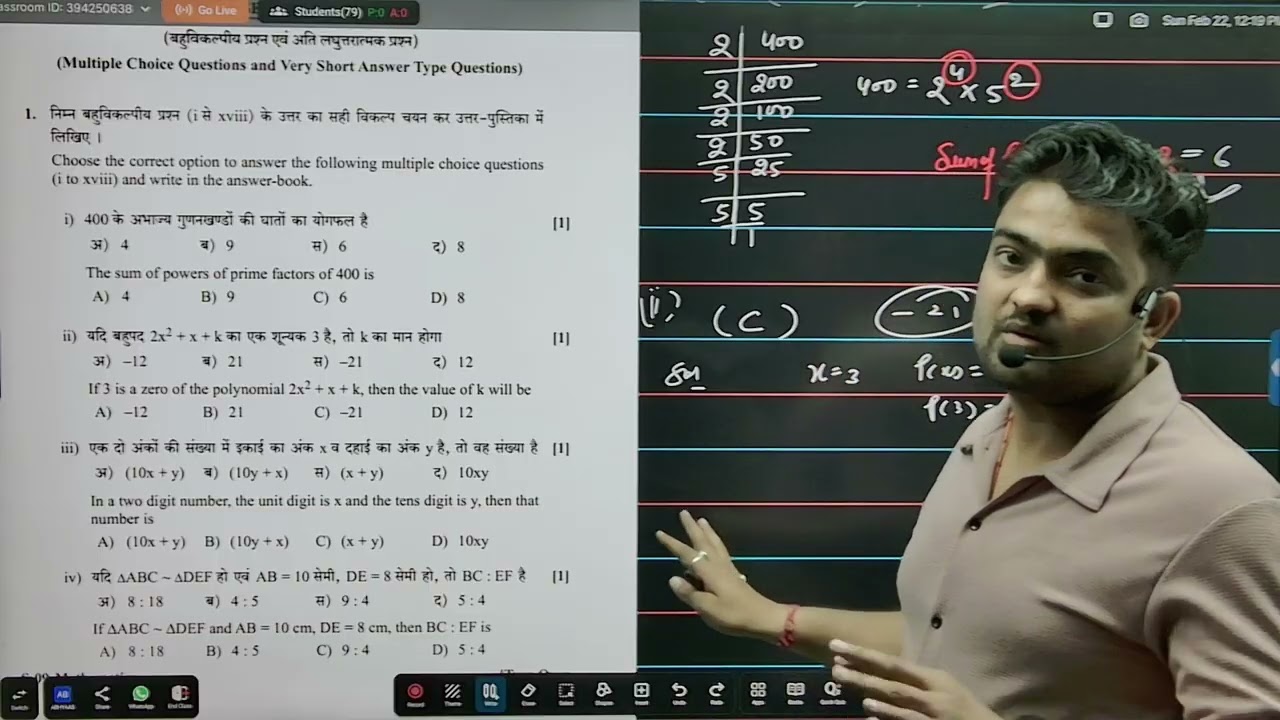 assroom ID: 394250638
Go Live
Students(79) P:0 A:0
Sun Feb 22, 12:19 PM
(बहुविकल्पीय प्रश्न एवं अति लघुत्तरात्मक प्रश्न)
(Multiple Choice Questions and Very Short Answer Type Questions)
1. निम्न बहुविकल्पीय प्रश्न (i से xviii) के उत्तर का सही विकल्प चयन कर उत्तर-पुस्तिका में
लिखिए ।
Choose the correct option to answer the following multiple choice questions
(i to xviii) and write in the answer-book.
i) 400 के अभाज्य गुणनखण्डों की घातों का योगफल है [1]
अ) 4 ब) 9 स) 6 द) 8
The sum of powers of prime factors of 400 is
A) 4 B) 9 C) 6 D) 8
ii) यदि बहुपद 2x² + x + k का एक शून्यक 3 है, तो k का मान होगा [1]
अ) –12 ब) 21 स) –21 द) 12
If 3 is a zero of the polynomial 2x² + x + k, then the value of k will be
A) –12 B) 21 C) –21 D) 12
iii) एक दो अंकों की संख्या में इकाई का अंक x व दहाई का अंक y है, तो वह संख्या है [1]
अ) (10x + y) ब) (10y + x) स) (x + y) द) 10xy
In a two digit number, the unit digit is x and the tens digit is y, then that
number is
A) (10x + y) B) (10y + x) C) (x + y) D) 10xy
iv) यदि ΔABC ~ ΔDEF हो एवं AB = 10 सेमी, DE = 8 सेमी हो, तो BC : EF है [1]
अ) 8 : 18 ब) 4 : 5 स) 9 : 4 द) 5 : 4
If ΔABC ~ ΔDEF and AB = 10 cm, DE = 8 cm, then BC : EF is
A) 8 : 18 B) 4 : 5 C) 9 : 4 D) 5 : 4
2 400
2 200
2 100
2 50
5 25
5 5
1
400 = 2⁴ × 5²
Sum of = 6
(ii) (C) –21
Sol x = 3 P(x) =
P(3) =
Switch
AB
Share
WhatsApp
End Class
Record
Theme
Write
Erase
Select
Shapes
Insert
Undo
Redo
Apps
Books
Quick Quiz